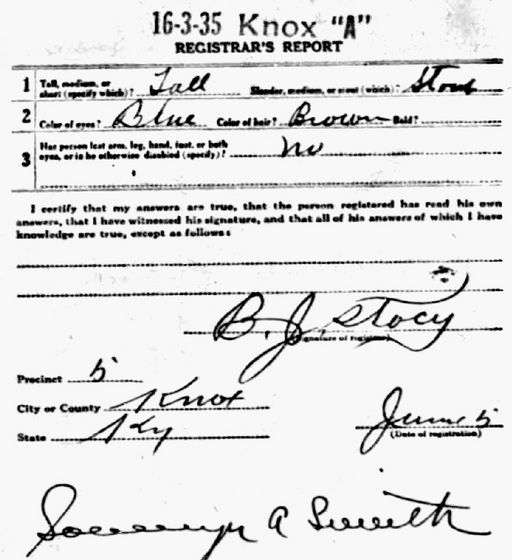 16-3-35 Knox "A"
REGISTRAR'S REPORT
1 Tall, medium, or short (specify which)? Tall Slender, medium, or stout (which)? Stout
2 Color of eyes? Blue Color of hair? Brown Bald?
3 Has person lost arm, leg, hand, foot, or both eyes, or is he otherwise disabled (specify)? No
I certify that my answers are true, that the person registered has read his own
answers, that I have witnessed his signature, and that all of his answers of which I have
knowledge are true, except as follows:
B. J. Stacy
(Signature of registrar)
Precinct 5
City or County Knox
State Ky
June 5
(Date of registration)
A Smith